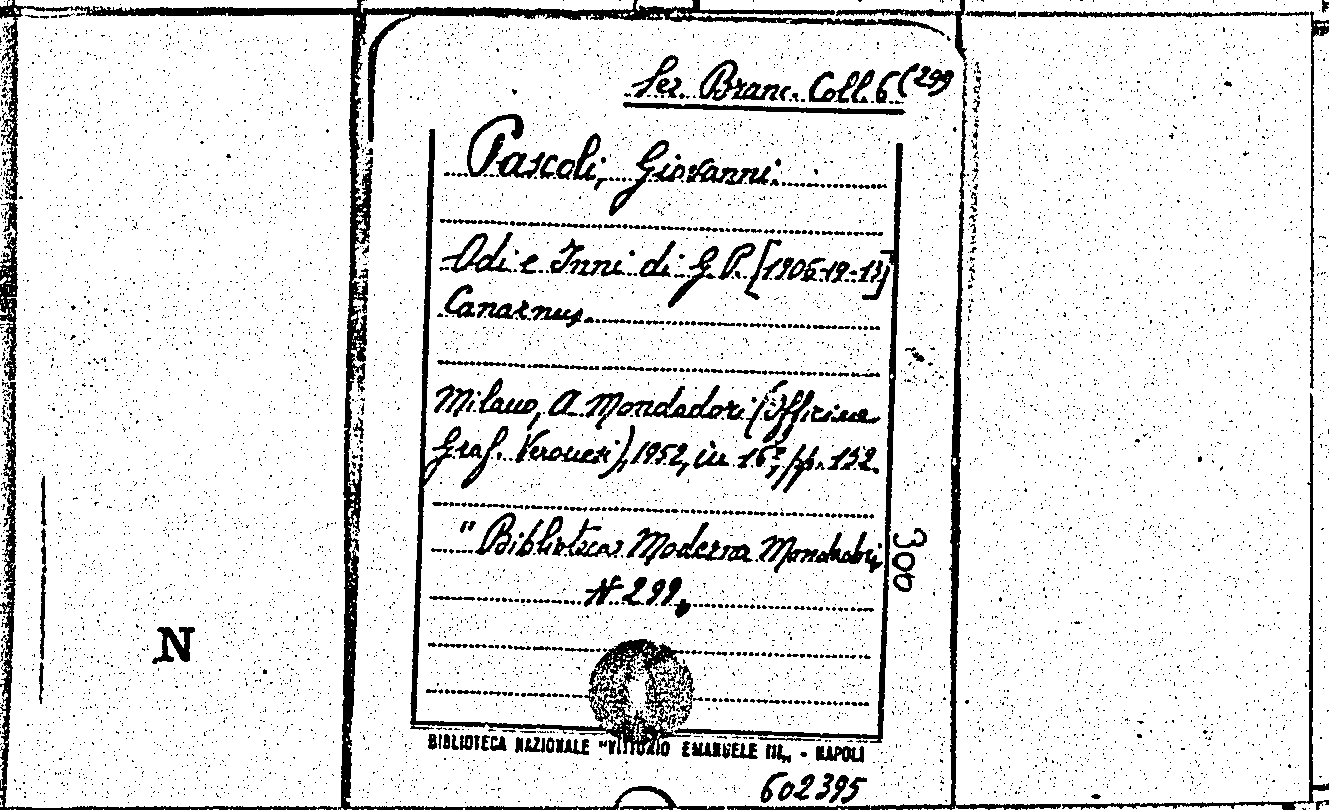 Ser. Branc. Coll. 6 (299
Pascoli, Giovanni.
Odi e Inni di G. P. [1906-19-13]
Milano, A Mondadori (Officine
Graf. Veronesi), 1952, in 16º, pp. 132.
300
"Biblioteca Moderna Mondadori,
N. 299„
N
BIBLIOTECA NAZIONALE "VITTORIO EMANUELE III„ - NAPOLI
602395